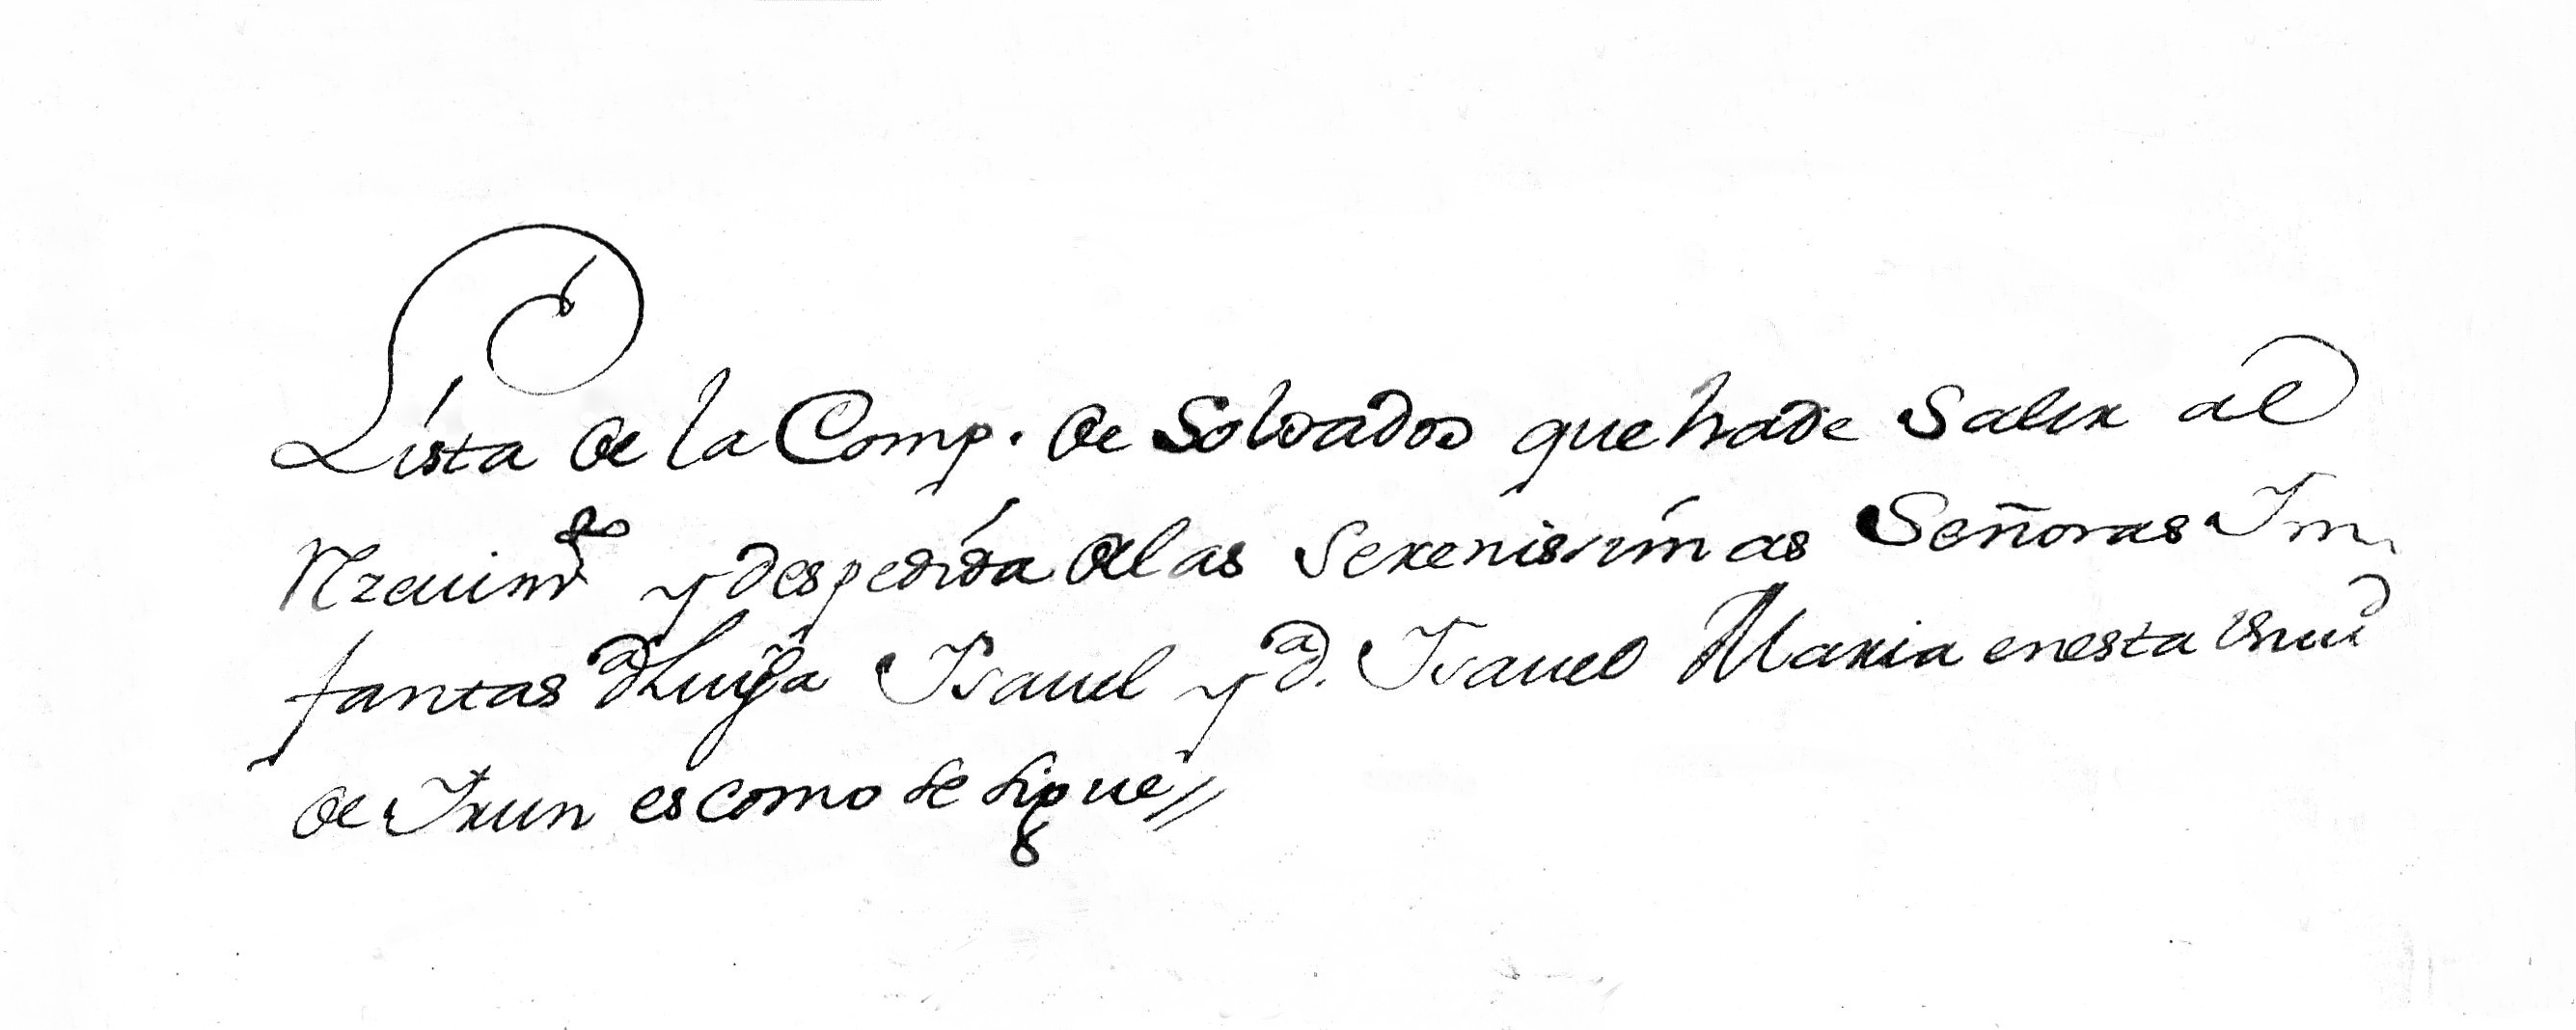 Lista de la Comp. de Soldados que hade Salir al
Rzeuimto y despedida delas Serenissimas Señoras In
fantas Da Luysa Isauel y Da. Isauel Maria enesta Vniud
de Irun es como se sigue//